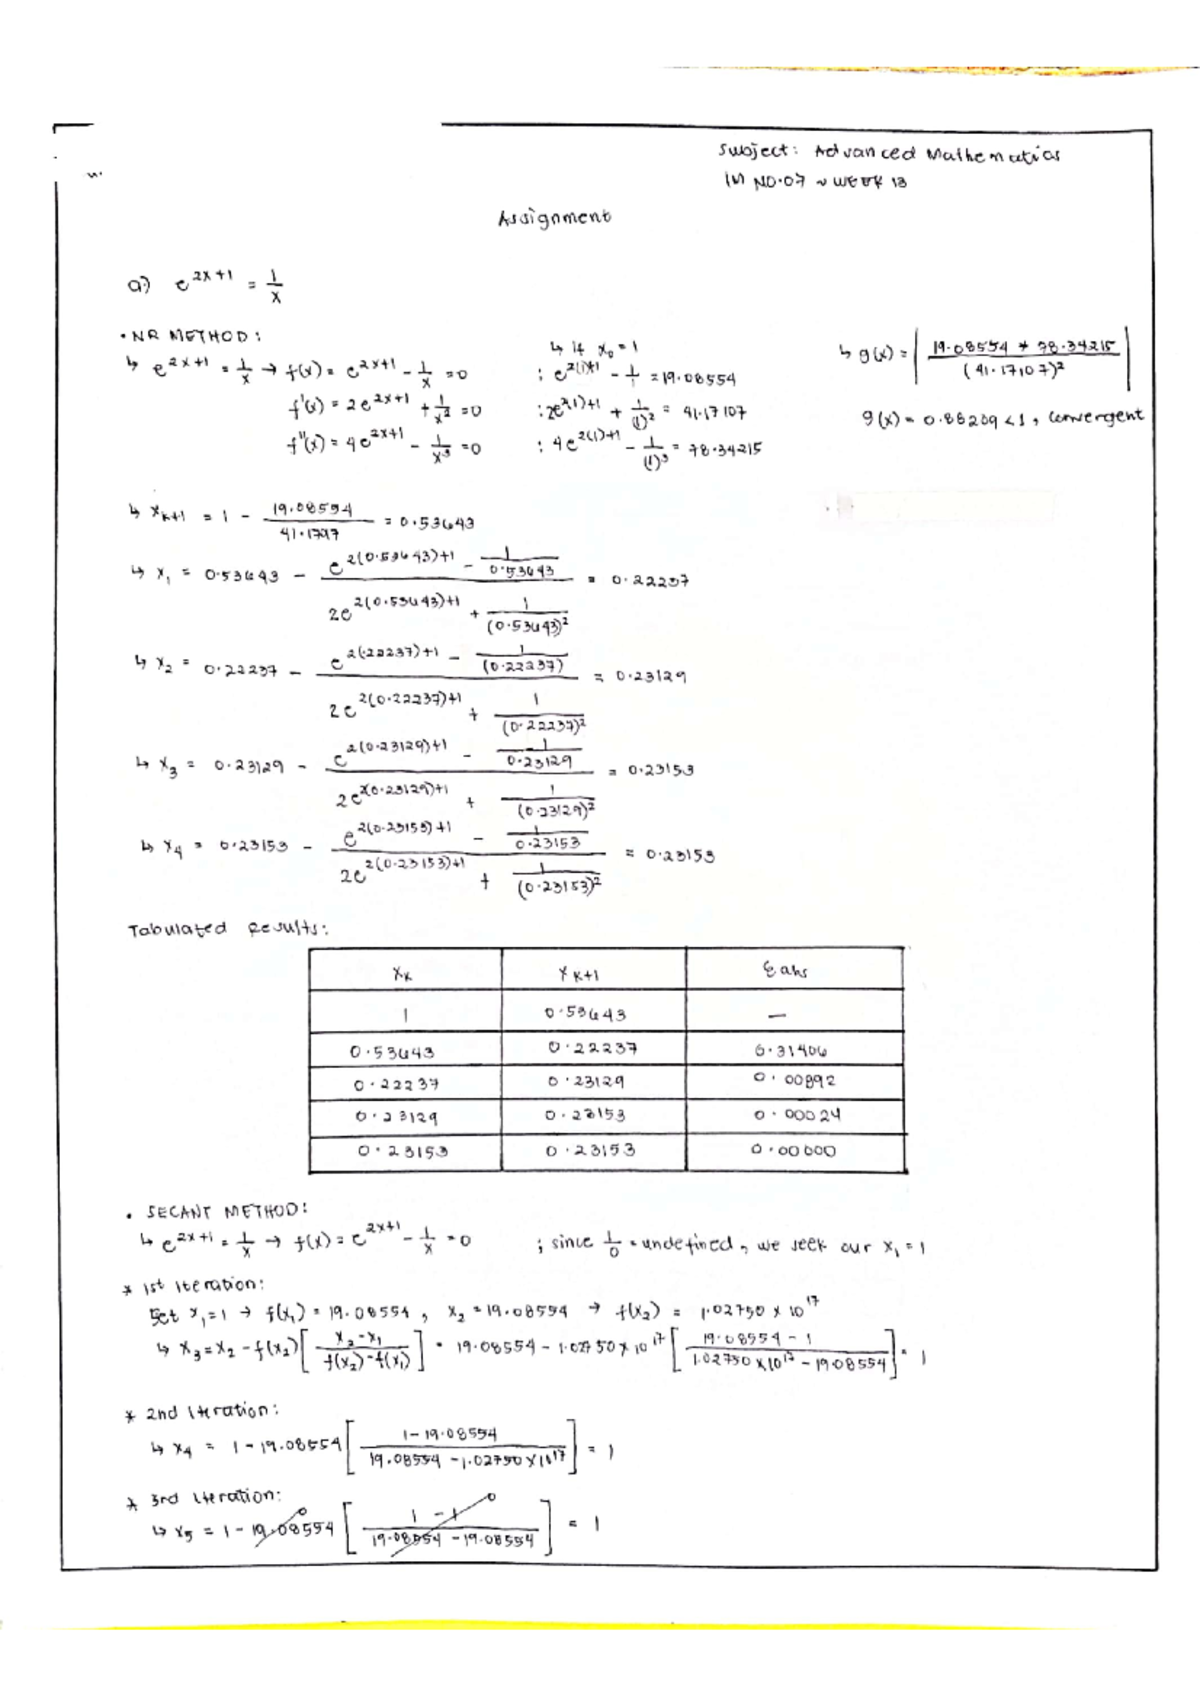 Subject: Advanced Mathematics
IM NO.07 ~ WEEK 13
Assignment
a.) e^{2x+1} = 1/x
• NR METHOD:
↳ e^{2x+1} = 1/x → f(x) = e^{2x+1} - 1/x = 0
f'(x) = 2e^{2x+1} + 1/x² = 0
f''(x) = 4e^{2x+1} - 1/x³ = 0
↳ if x₀ = 1
: e^{2(1)+1} - 1/1 = 19.08554
: 2e^{2(1)+1} + 1/(1)² = 41.17107
: 4e^{2(1)+1} - 1/(1)³ = 78.34215
↳ g(x) = | 19.08554 * 78.34215 / (41.17107)² |
g(x) = 0.88209 < 1, convergent
↳ x_{K+1} = 1 - 19.08554/41.1797 = 0.53643
↳ x₁ = 0.53643 - (e^{2(0.53643)+1} - 1/0.53643) / (2e^{2(0.53643)+1} + 1/(0.53643)²) = 0.22237
↳ x₂ = 0.22237 - (e^{2(.22237)+1} - 1/(0.22237)) / (2e^{2(0.22237)+1} + 1/(0.22237)²) = 0.23129
↳ x₃ = 0.23129 - (e^{2(0.23129)+1} - 1/0.23129) / (2e^{2(0.23129)+1} + 1/(0.23129)²) = 0.23153
↳ x₄ = 0.23153 - (e^{2(0.23153)+1} - 1/0.23153) / (2e^{2(0.23153)+1} + 1/(0.23153)²) = 0.23153
Tabulated Results:
x_K x_{K+1} Eabs
1 0.53643 —
0.53643 0.22237 0.31406
0.22237 0.23129 0.00892
0.23129 0.23153 0.00024
0.23153 0.23153 0.00000
• SECANT METHOD:
↳ e^{2x+1} = 1/x → f(x) = e^{2x+1} - 1/x = 0 ; since 1/0 = undefined, we seek our x₁ = 1
* 1st Iteration:
Set x₁=1 → f(x₁) = 19.08554, x₂ = 19.08554 → f(x₂) = 1.02750 x 10^{17}
↳ x₃ = x₂ - f(x₂)[(x₂-x₁)/(f(x₂)-f(x₁))] = 19.08554 - 1.02750 x 10^{17}[(19.08554 - 1)/(1.02750 x 10^{17} - 19.08554)] = 1
* 2nd Iteration:
↳ x₄ = 1 - 19.08554[(1 - 19.08554)/(19.08554 - 1.02750 x 10^{17})] = 1
* 3rd Iteration:
↳ x₅ = 1 - 19.08554 0 [(1 - 1)/(19.08554 - 19.08554) 0] = 1